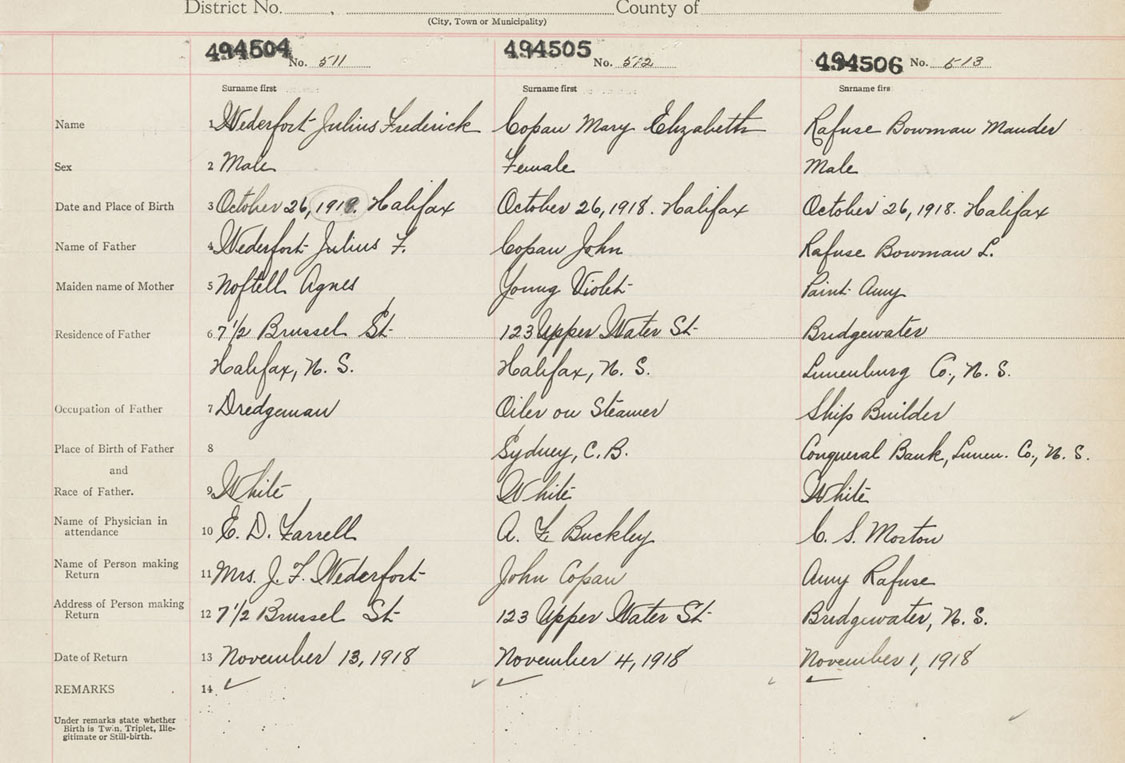 District No. County of
(City, Town or Municipality)
494504 No. 511 494505 No. 512 494506 No. 513
Surname first Surname first Surname firs
Name 1 Wederfort Julius Frederick Copan Mary Elizabeth Rafuse Bowman Mander
Sex 2 Male Female Male
Date and Place of Birth 3 October 26, 1918. Halifax October 26, 1918. Halifax October 26, 1918. Halifax
Name of Father 4 Wederfort Julius F. Copan John Rafuse Bowman L.
Maiden name of Mother 5 Noftell Agnes Young Violet Paint Amy
Residence of Father 6 7 1/2 Brussel St 123 Upper Water St Bridgewater
Halifax, N. S. Halifax, N. S. Lunenburg Co., N. S.
Occupation of Father 7 Dredgeman Oiler on Steamer Ship Builder
Place of Birth of Father 8 Sydney, C. B. Conqueral Bank, Lunen. Co., N. S.
and
Race of Father. 9 White White White
Name of Physician in
attendance 10 E. D. Farrell A. F. Buckley C. S. Morton
Name of Person making
Return 11 Mrs. J. F. Wederfort John Copan Amy Rafuse
Address of Person making
Return 12 7 1/2 Brussel St 123 Upper Water St Bridgewater, N. S.
Date of Return 13 November 13, 1918 November 4, 1918 November 1, 1918
REMARKS 14
Under remarks state whether
Birth is Twin, Triplet, Ille-
gitimate or Still-birth.